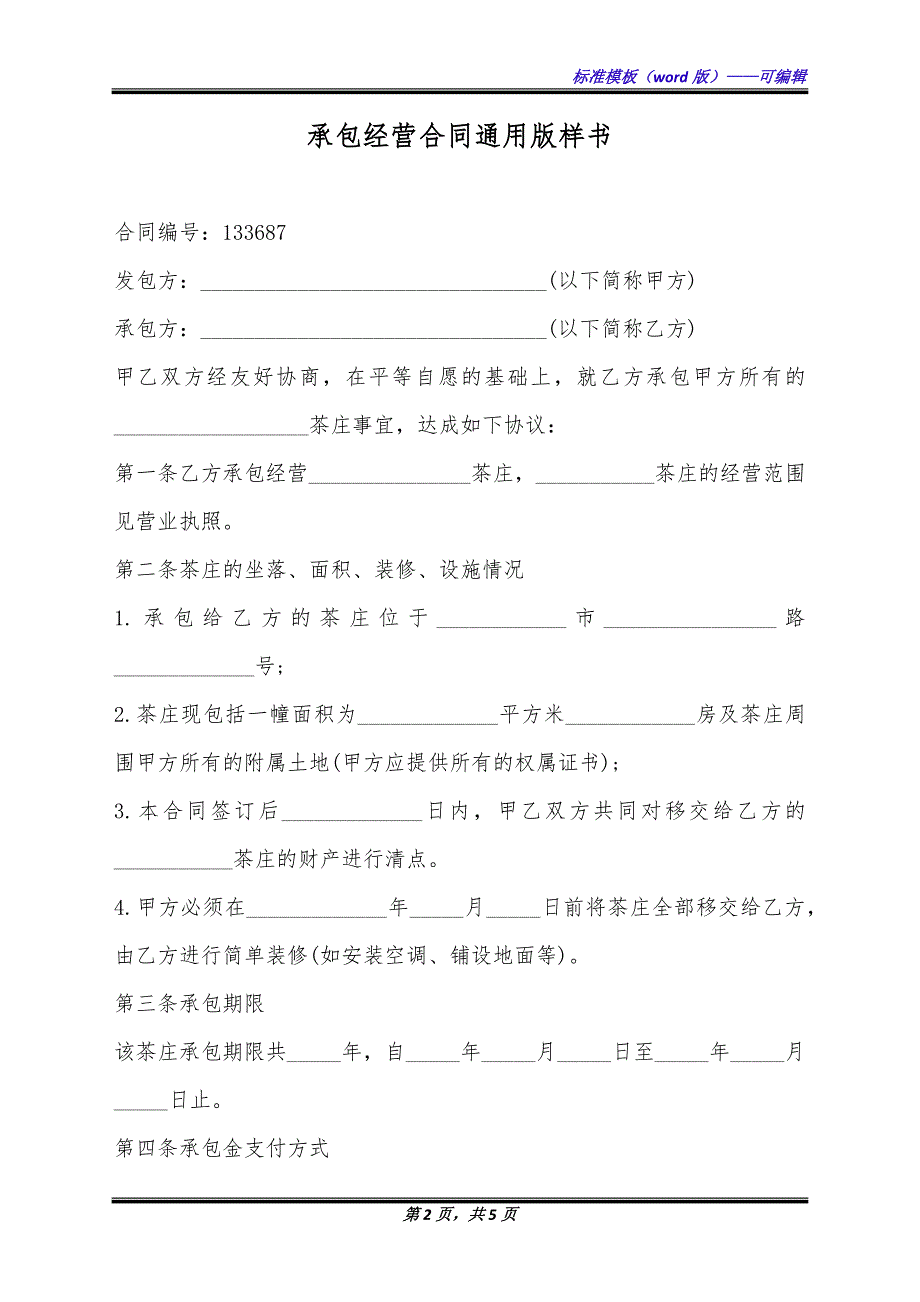 标准模板（word 版）——可编辑
承包经营合同通用版样书
合同编号：133687
发包方：________________________________(以下简称甲方)
承包方：________________________________(以下简称乙方)
甲乙双方经友好协商，在平等自愿的基础上，就乙方承包甲方所有的
__________________茶庄事宜，达成如下协议：
第一条乙方承包经营_______________茶庄，___________茶庄的经营范围
见营业执照。
第二条茶庄的坐落、面积、装修、设施情况
1. 承包给乙方的茶庄位于____________市________________路
_____________号;
2.茶庄现包括一幢面积为_____________平方米____________房及茶庄周
围甲方所有的附属土地(甲方应提供所有的权属证书);
3.本合同签订后_____________日内，甲乙双方共同对移交给乙方的
___________茶庄的财产进行清点。
4.甲方必须在_____________年_____月_____日前将茶庄全部移交给乙方，
由乙方进行简单装修(如安装空调、铺设地面等)。
第三条承包期限
该茶庄承包期限共_____年，自_____年_____月_____日至_____年_____月
_____日止。
第四条承包金支付方式
第 2 页，共 5 页